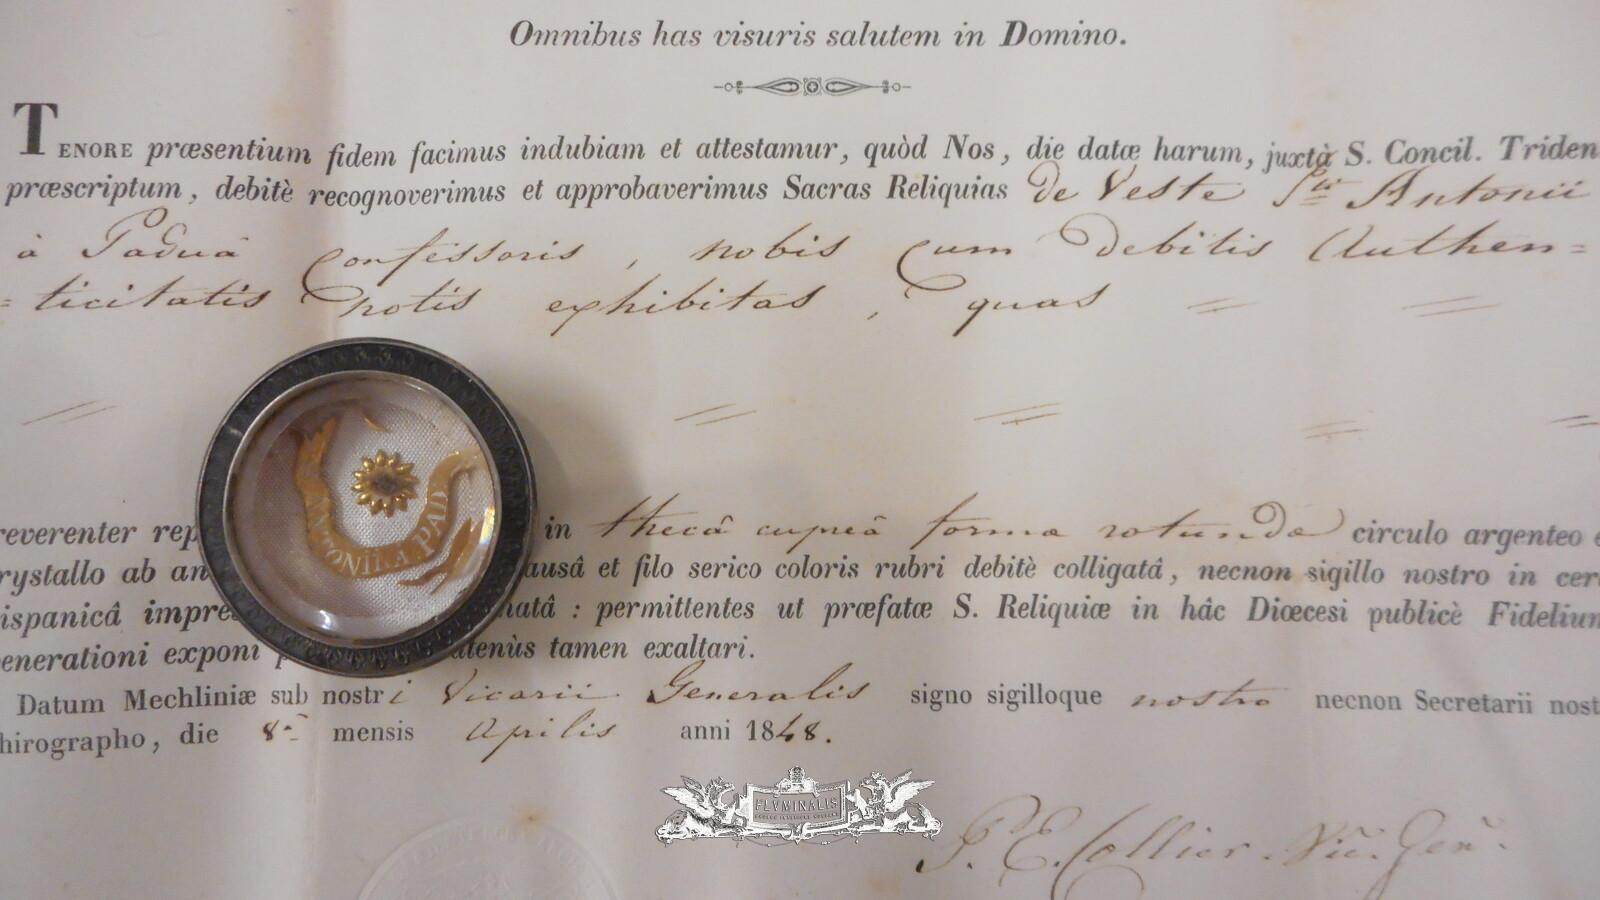 Omnibus has visuris salutem in Domino.
TENORE præsentium fidem facimus indubiam et attestamur, quòd Nos, die datæ harum, juxtà S. Concil. Triden
præscriptum, debitè recognoverimus et approbaverimus Sacras Reliquias de Veste Sti Antonii
à Paduâ Confessoris, nobis cum debitis Authen=
=ticitatis notis exhibitas, quas
reverenter rep in thecâ cupreâ formæ rotundæ circulo argenteo e
rystallo ab an ausâ et filo serico coloris rubri debitè colligatâ, necnon sigillo nostro in cer
ispanicâ impres natâ : permittentes ut præfatæ S. Reliquiæ in hâc Diœcesi publicè Fidelium
enerationi exponi p atenùs tamen exaltari.
Datum Mechliniæ sub nostri Vicarii Generalis signo sigilloque nostro necnon Secretarii nost
hirographo, die 8a mensis Aprilis anni 1848.
ANTONII. A. PAD
FLVMINALIS
P. E. Collier. Vic. Gen.